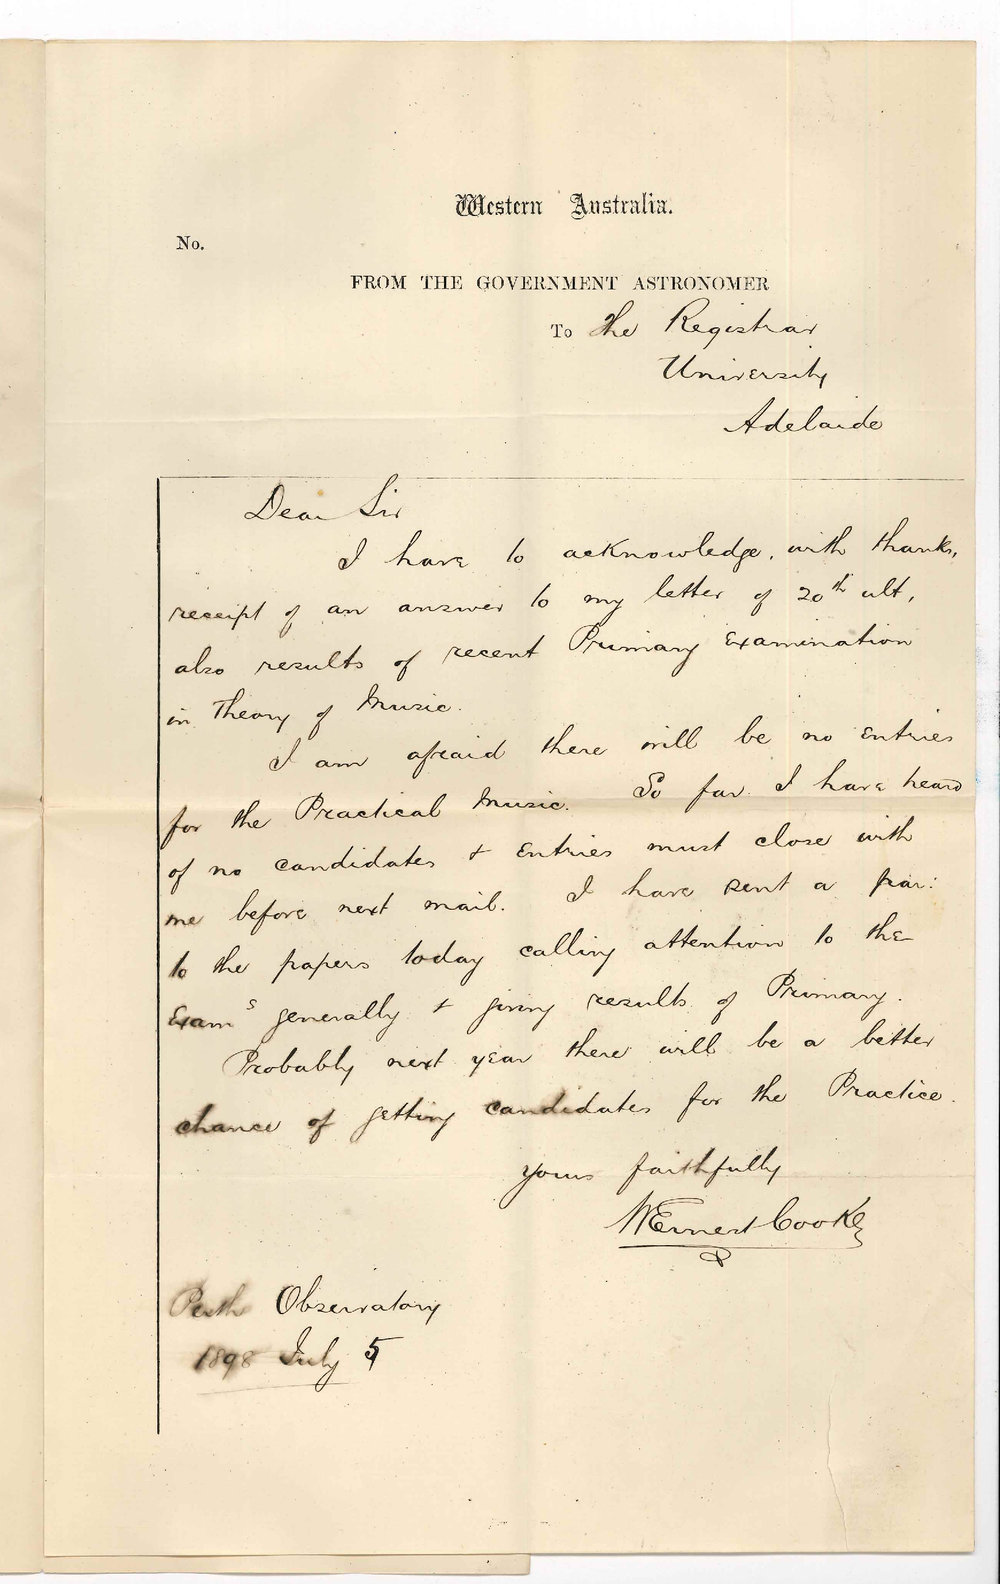 Western Australia.
No.
FROM THE GOVERNMENT ASTRONOMER
To The Registrar
University
Adelaide
Dear Sir
I have to acknowledge, with thanks,
receipt of an answer to my letter of 20th ult,
also results of recent Primary Examination
in Theory of Music.
I am afraid there will be no entries
for the Practical Music. So far I have heard
of no candidates & entries must close with
me before next mail. I have sent a par:
to the papers today calling attention to the
Exams generally & giving results of Primary.
Probably next year there will be a better
chance of getting candidates for the Practice.
Yours faithfully
W Ernest Cooke
Perth Observatory
1898 July 5